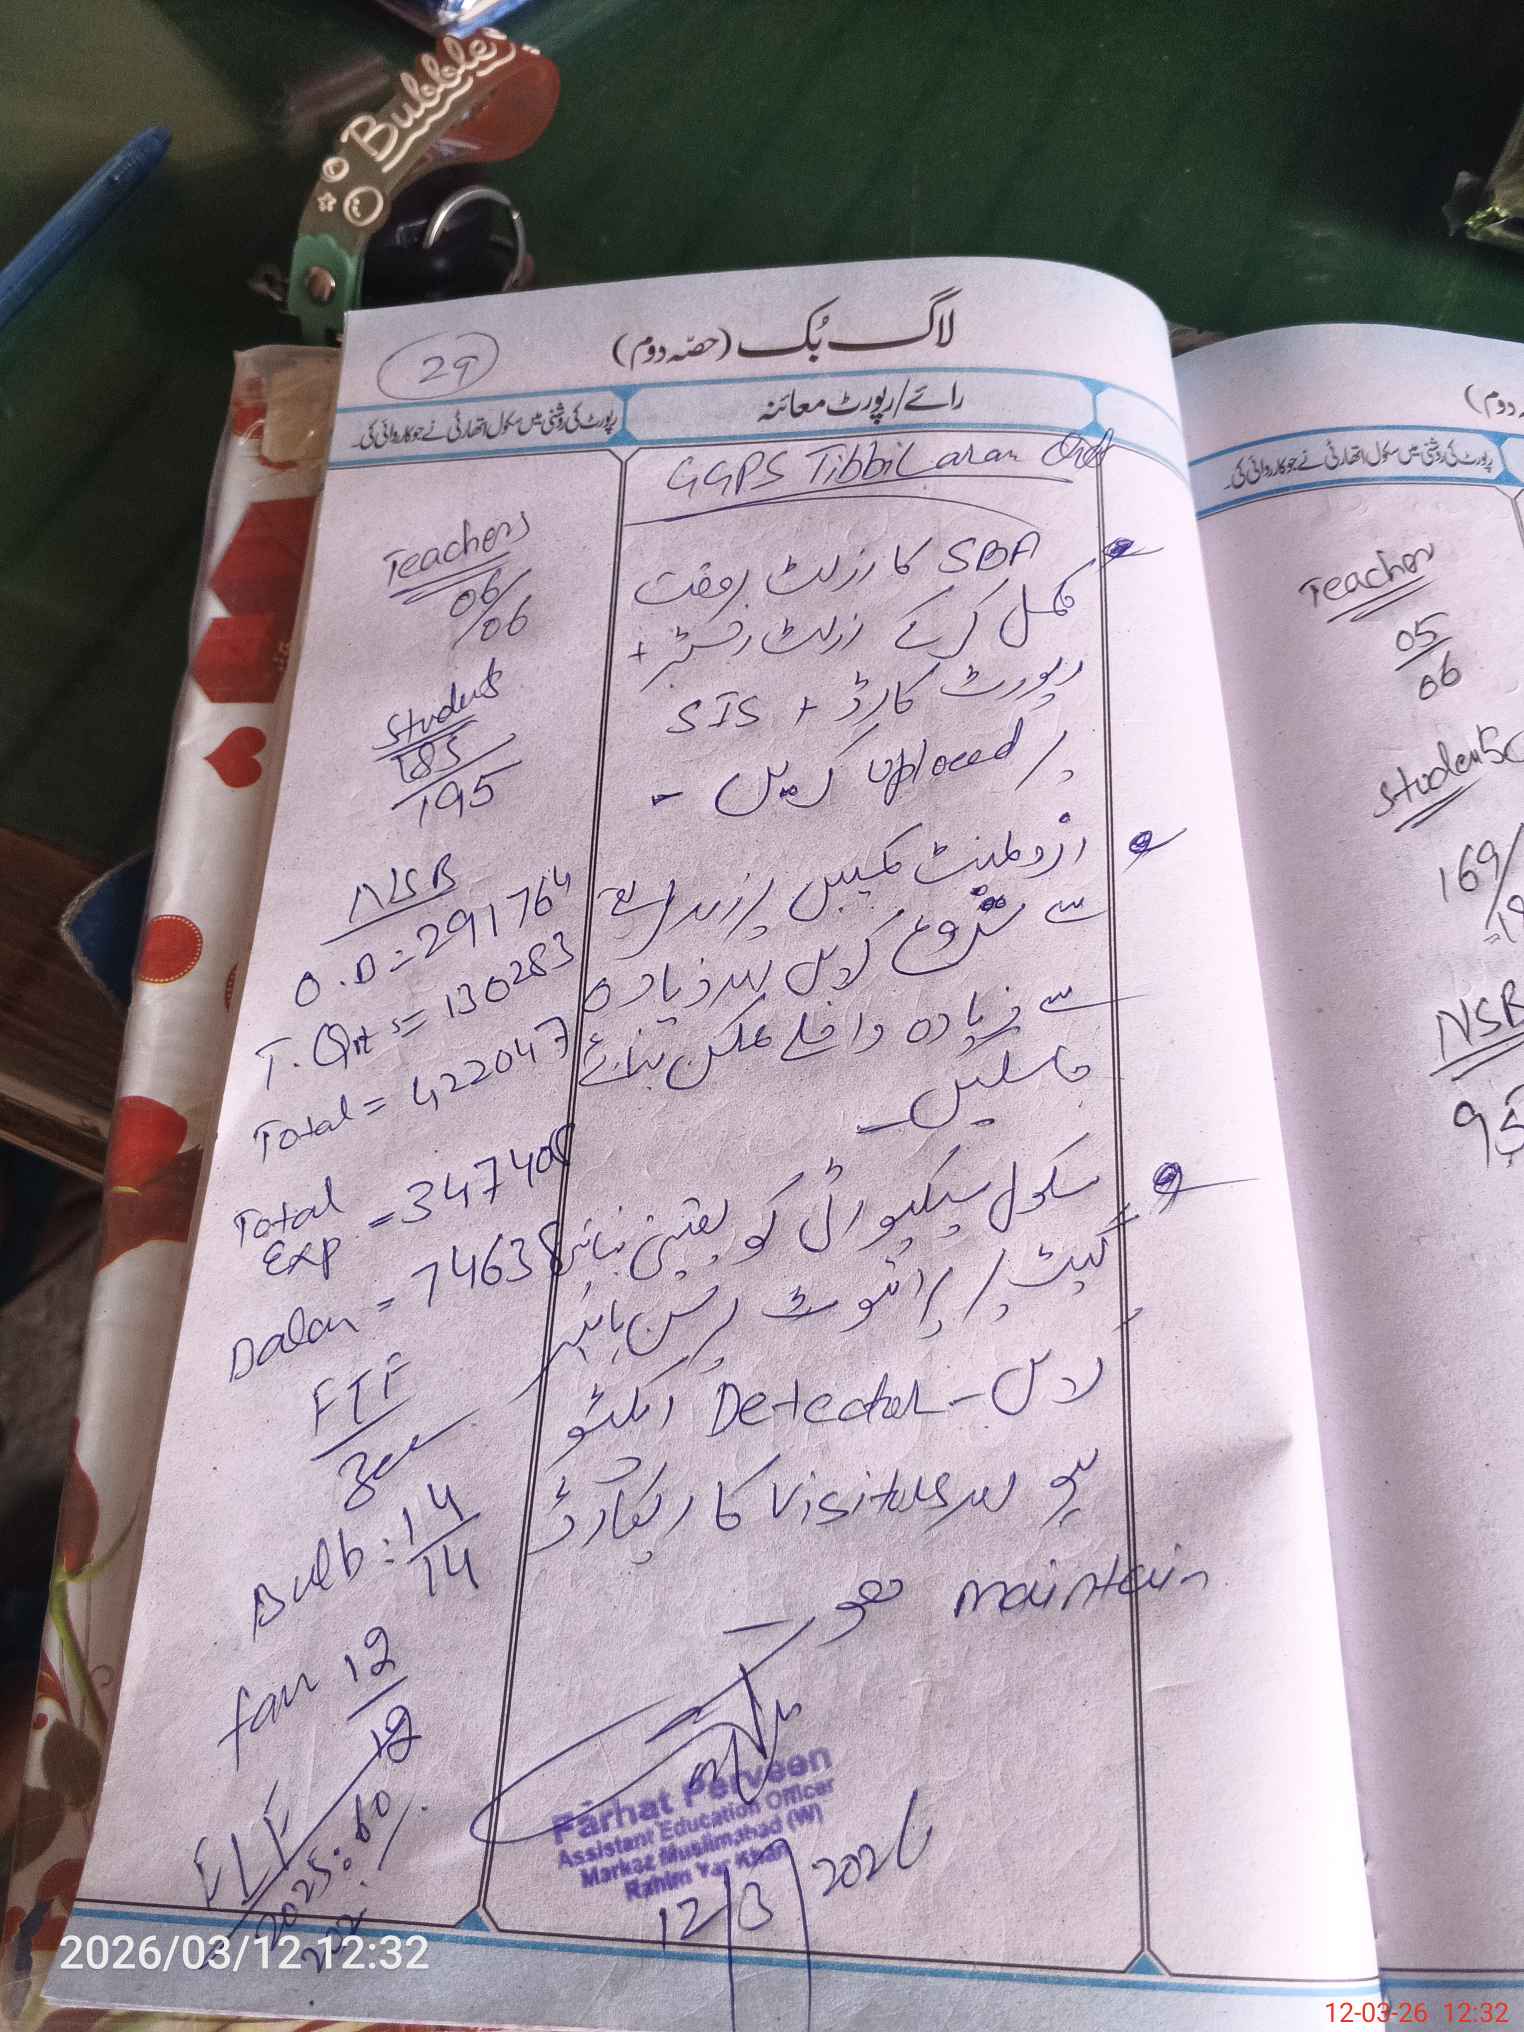 Bubble
29
لاگ بُک (حصّہ دوم)
رپورٹ کی روشنی میں سکول اتھارٹی نے جو کارروائی کی۔
رائے/رپورٹ معائنہ
GGPS Tibbi Laran
Teachers
06/06
Students
185
195
NSB
O.D = 291764
T. Qrt = 130283
Total = 422047
Total Exp = 347408
= 74638
FTF
Bulb: 14
14
fan 12
12
2025: 60
SBA کا رزلٹ بروقت
مکمل کرکے رزلٹ رجسٹر +
رپورٹ کارڈ + SIS
پر Uploead کریں -
انرولمنٹ کمپین
سے شروع کردیں اور زیادہ
سے زیادہ داخلے ممکن بنائے
جاسکیں -
سکول سیکیورٹی کو یقینی بنائیں
گیٹ پر پرائیوٹ پرسن ہائیر
کریں - Detector ایکٹو
ہو اور Visitors کا ریکارڈ
maintain ہو -
Farhat Perveen
Assistant Education Officer
Markaz Muslimabad (W)
Rahim Yar Khan
12/3/2026
دوم)
رپورٹ کی روشنی میں سکول اتھارٹی نے جو کارروائی کی۔
Teacher
05
06
Students
169/
NSB
2026/03/12 12:32
12-03-26 12:32